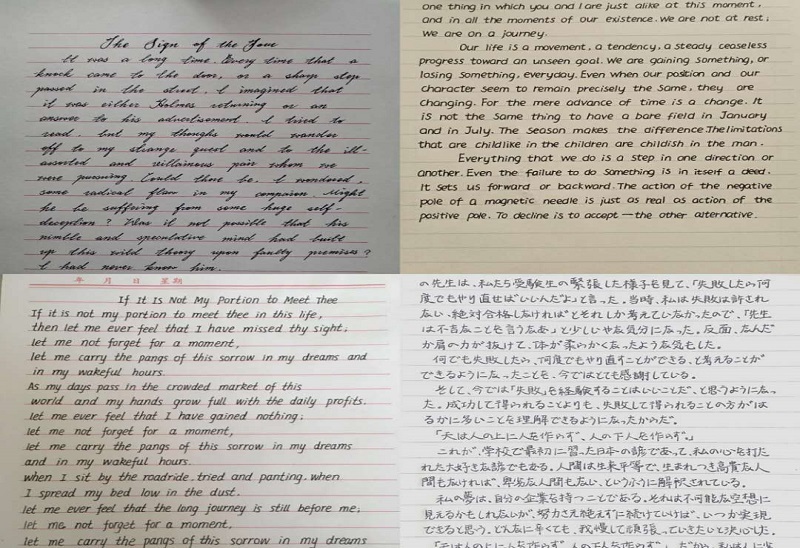 The Sign of the Four
It was a long time. Every time that a
knock came to the door, or a sharp step
passed in the street, I imagined that
it was either Holmes returning or an
answer to his advertisement. I tried to
read, but my thoughs would wander
off to my strange quest and to the ill-
assorted and villainous pair whom we
were pursuing. Could there be, I wondered,
some radical flaw in my companion. Might
he be suffering from some huge self-
deception? Was it not possible that his
nimble and speculative mind had built
up this wild theory upon faulty premises?
I had never know him.
one thing in which you and I are just alike at this moment,
and in all the moments of our existence. We are not at rest;
We are on a journey.
Our life is a movement, a tendency, a steady ceaseless
progress toward an unseen goal. We are gaining something, or
losing Something, everyday. Even when our position and our
character seem to remain precisely the Same, they are
changing. For the mere advance of time is a change. It
is not the Same thing to have a bare field in January
and in July. The season makes the difference. The limitations
that are childlike in the children are childish in the man.
Everything that we do is a step in one direction or
another. Even the failure to do Something is in itself a deed.
It Sets us forward or backward. The action of the negative
pole of a magnetic needle is just as real as action of the
positive pole. To decline is to accept — the other alternative.
年 月 日 星期
If It Is Not My Portion to Meet Thee
If it is not my portion to meet thee in this life,
then let me ever feel that I have missed thy sight,
let me not forget for a moment,
let me carry the pangs of this sorrow in my dreams and
in my wakeful hours.
As my days pass in the crowded market of this
world and my hands grow full with the daily profits.
let me ever feel that I have gained nothing;
let me not forget for a moment,
let me carry the pangs of this sorrow in my dreams
and in my wakeful hours.
when I sit by the roadride, tried and panting, when
I spread my bed low in the dust.
let me ever feel that the long journey is still before me;
let me not forget for a moment,
let me carry the pangs of this sorrow in my dreams
の先生は、私たち受験生の緊張した様子を見て、「失敗したら何
度でもやり直せばいいんだよ」と言った。当時、私は失敗は許され
ない、絶対合格しなければとそれしか考えていなかったので、「先生
は不吉なことを言うなあ」と少しいやな気分になった。反面、なんだ
か肩の力が抜けて、体が柔らかくなったような気もした。
何でも失敗したら、何度でもやり直すことができる、と考えることが
できるようになったことを、今ではとても感謝している。
そして、今では「失敗」を経験することはいいことだ、と思うようになっ
た。成功して得られることよりも、失敗して得られることの方がは
るかに多いことを理解できるようになったからだ。
「天は人の上に人を作らず、人の下に人を作らず。」
これが、学校で最初に習った日本の諺であって、私の心を打た
れた大好きな諺でもある。人間は生来平等で、生まれつき高貴な人
間もなければ、卑劣な人間もない、というふうに解釈されている。
私の夢は、自分の企業を持つことである。それは不可能な空想に
見えるかもしれないが、努力さえ絶えずに続けていけば、いつか実現
できると思う。どんなに辛くても、我慢して頑張っていきたいと決心した。